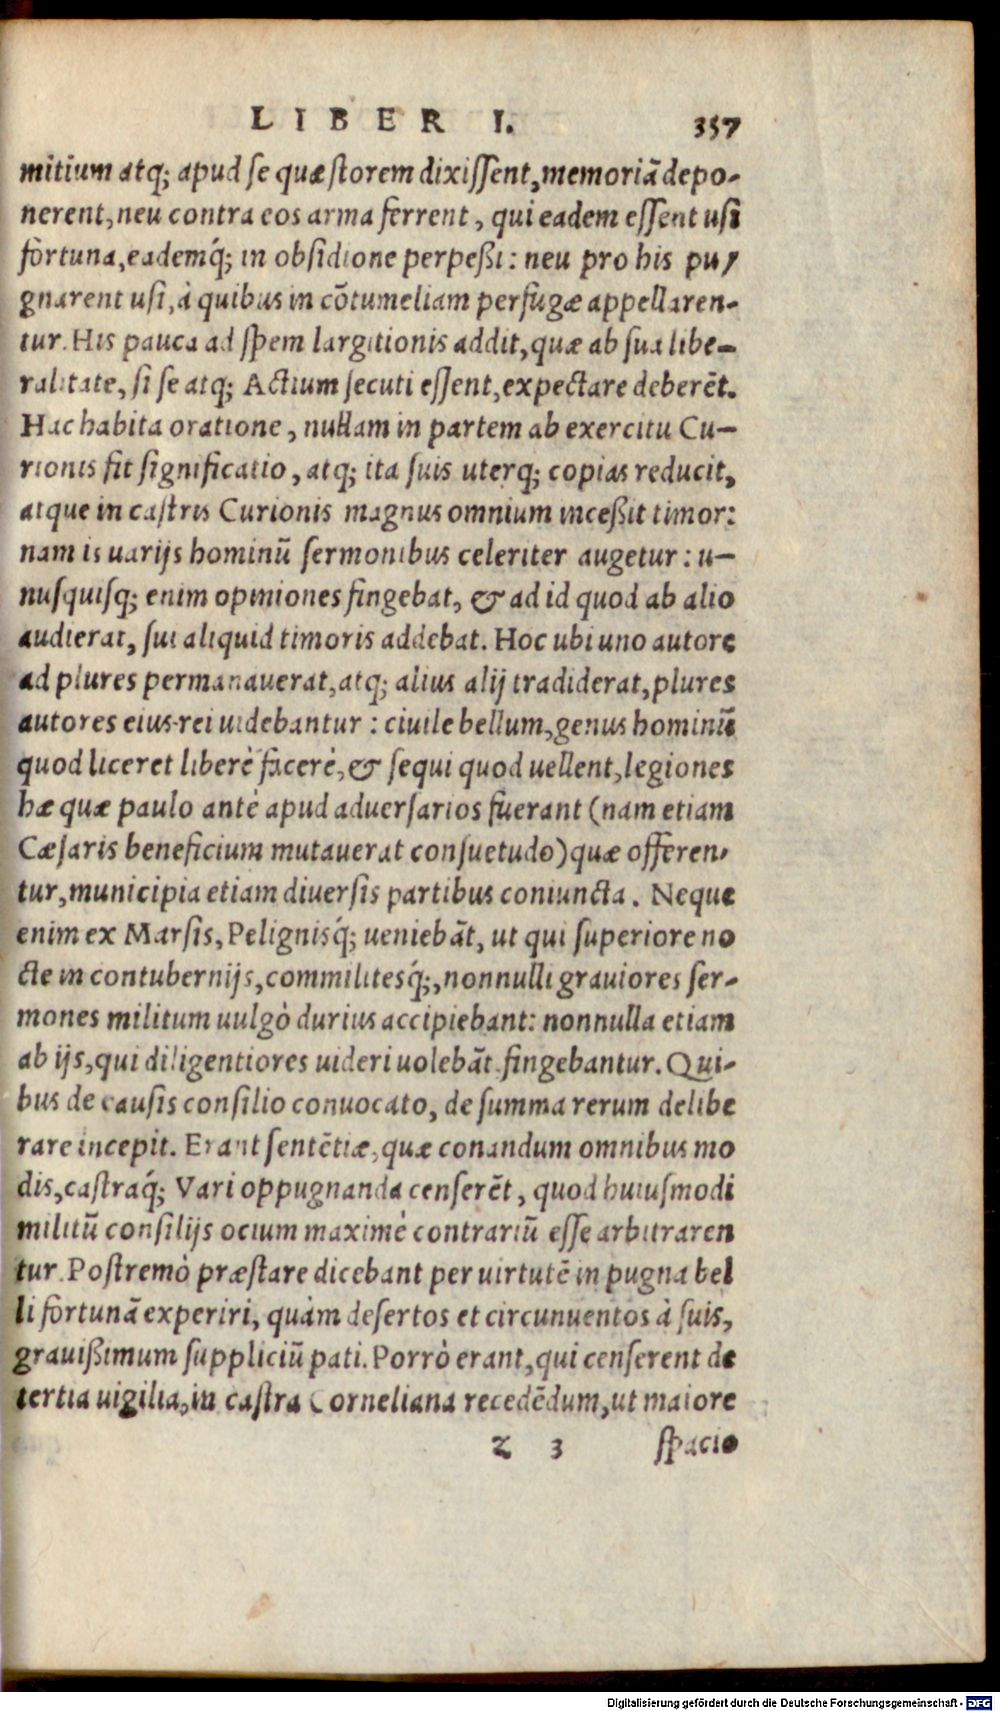 LIBER I. 357
mitium atq; apud se quæstorem dixissent, memoriã depo-
nerent, neu contra eos arma ferrent, qui eadem essent usi
fortuna, eademq́; in obsidione perpeßi: neu pro his pu-
gnarent usi, à quibus in cõtumeliam perfugæ appellaren-
tur. His pauca ad spem largitionis addit, quæ ab sua libe-
ralitate, si se atq; Actium secuti essent, expectare deberẽt.
Hac habita oratione, nullam in partem ab exercitu Cu-
rionis fit significatio, atq; ita suis uterq; copias reducit,
atque in castris Curionis magnus omnium inceßit timor:
nam is uarijs hominũ sermonibus celeriter augetur: u-
nusquisq; enim opiniones fingebat, & ad id quod ab alio
audierat, sui aliquid timoris addebat. Hoc ubi uno autore
ad plures permanauerat, atq; alius alij tradiderat, plures
autores eius rei uidebantur: ciuile bellum, genus hominũ
quod liceret liberè facerè, & sequi quod uellent, legiones
hæ quæ paulo antè apud aduersarios fuerant (nam etiam
Cæsaris beneficium mutauerat consuetudo) quæ offeren-
tur, municipia etiam diuersis partibus coniuncta. Neque
enim ex Marsis, Pelignisq́; ueniebãt, ut qui superiore no
cte in contubernijs, commilitesq́;, nonnulli grauiores ser-
mones militum uulgò durius accipiebant: nonnulla etiam
ab ijs, qui diligentiores uideri uolebãt fingebantur. Qui-
bus de causis consilio conuocato, de summa rerum delibe
rare incepit. Erant sentẽtiæ, quæ conandum omnibus mo
dis, castraq́; Vari oppugnanda censerẽt, quod huiusmodi
militũ consilijs ocium maximè contrariũ esse arbitraren
tur. Postremò præstare dicebant per uirtutẽ in pugna bel
li fortunã experiri, quàm desertos et circunuentos à suis,
grauißimum suppliciũ pati. Porrò erant, qui censerent de
tertia uigilia, in castra Corneliana recedẽdum, ut maiore
Z 3 spacio
Digitalisierung gefördert durch die Deutsche Forschungsgemeinschaft - DFG